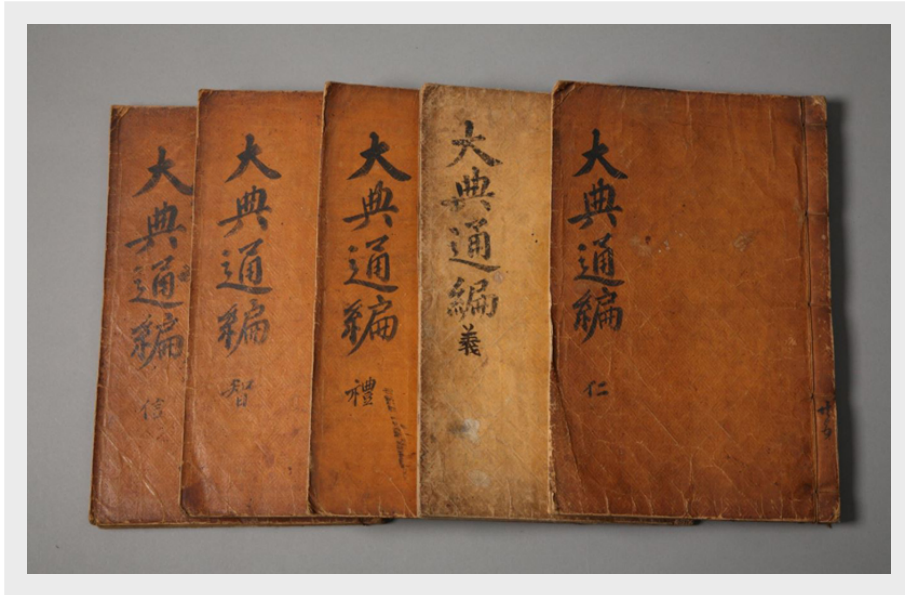 大典通編 仁
大典通編 義
大典通編 禮
大典通編 智
大典通編 信